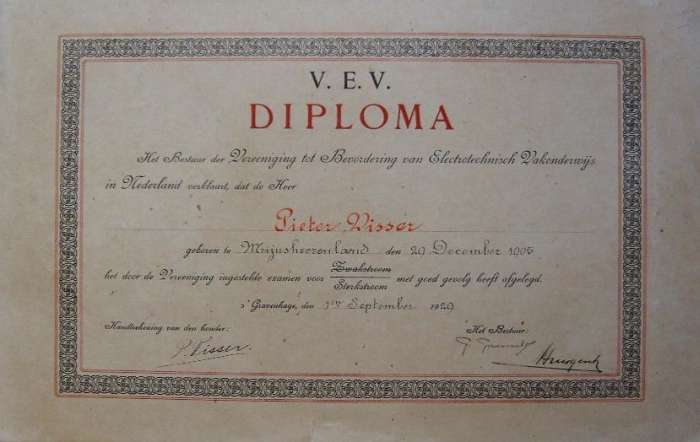 V. E. V.
DIPLOMA
Het Bestuur der Vereeniging tot Bevordering van Electrotechnisch Vakonderwijs
in Nederland verklaart, dat de Heer
Pieter Visser
geboren te den 29 December
het door de Vereeniging ingestelde examen voor Zwakstroom met goed gevolg heeft afgelegd.
Sterkstroom
's Gravenhage, den 17 September 1929
Handteekening van den houder: Het Bestuur:
P. Visser